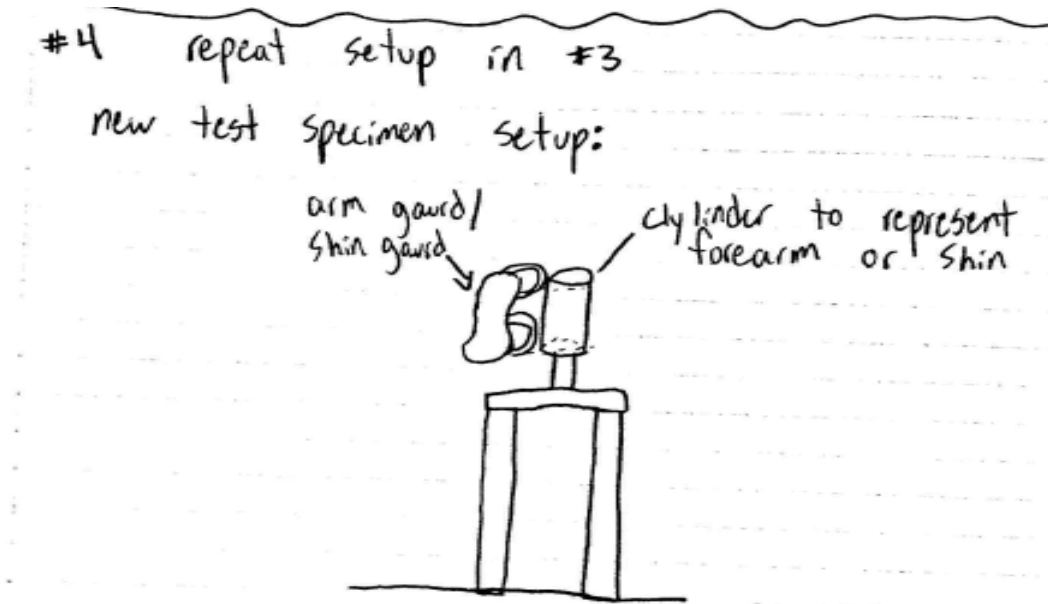 #4 repeat setup in #3
new test specimen setup:
arm gaurd/
shin gaurd
clylinder to represent
forearm or shin